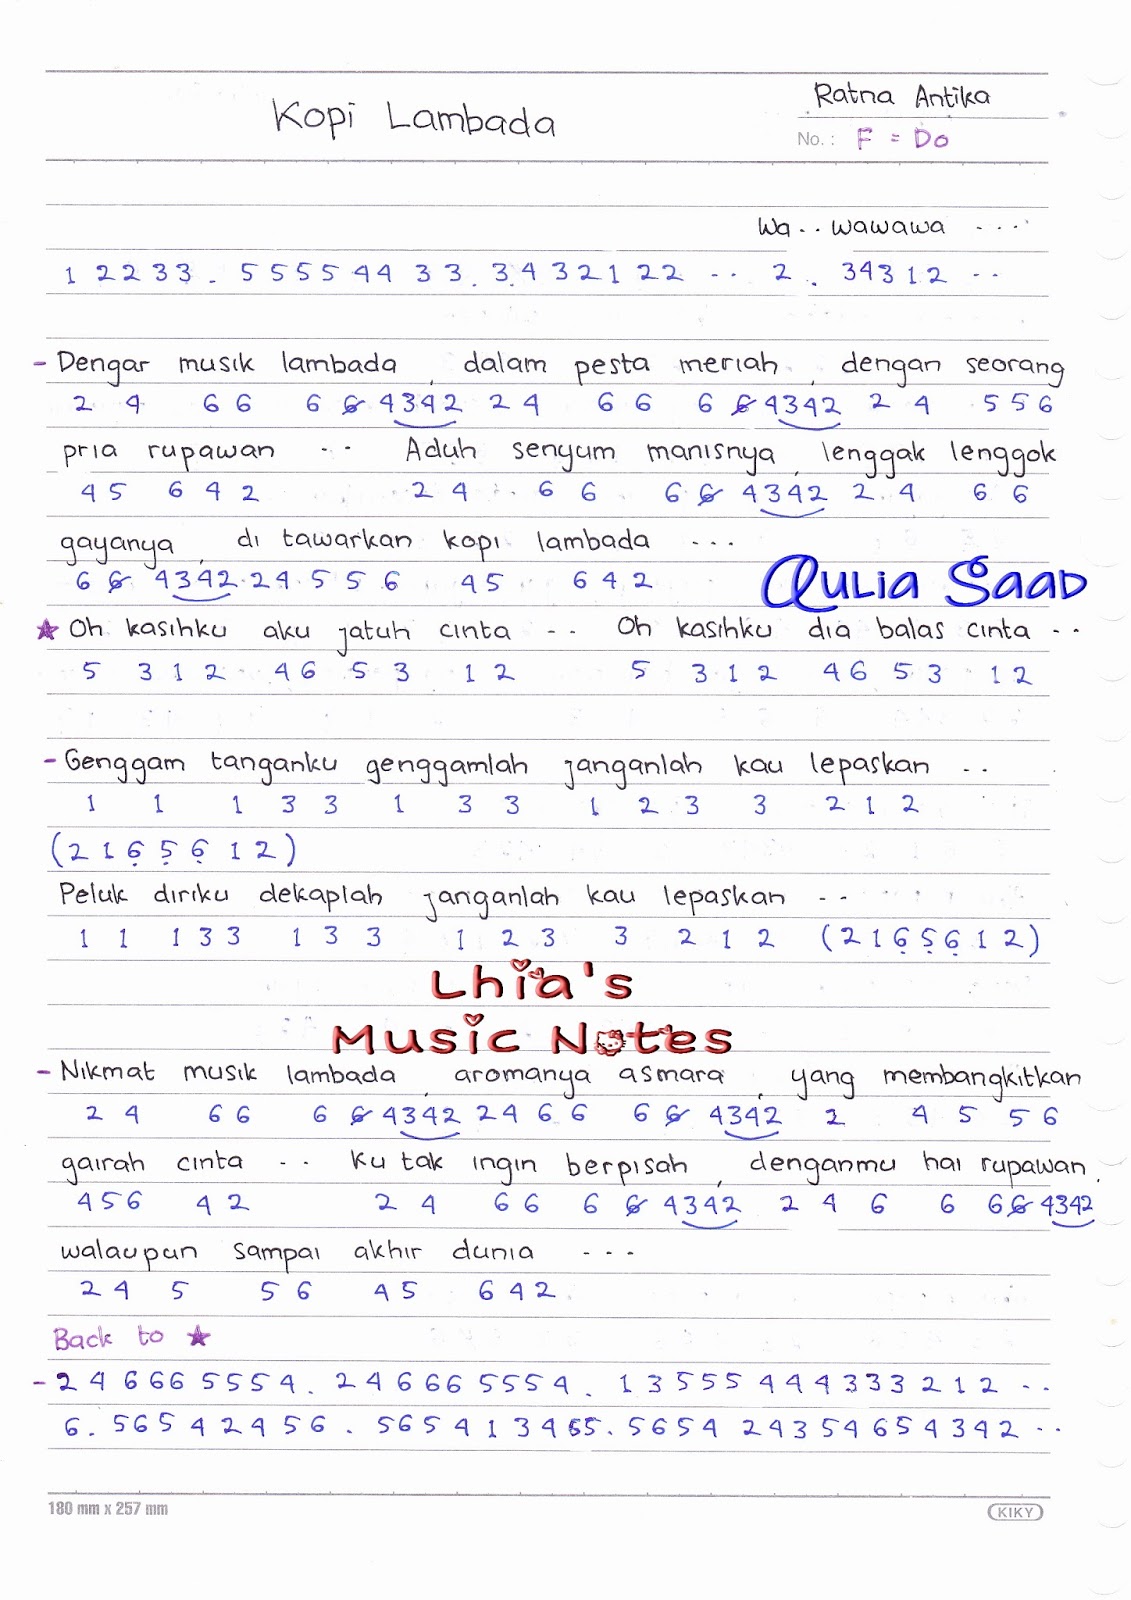 Kopi Lambada
Ratna Antika
No. : F = Do
Wa.. wawawa ....
1 2 2 3 3 . 5 5 5 5 4 4 3 3 . 3 4 3 2 1 2 2 .. 2 . 3 4 3 1 2 ..
- Dengar musik lambada , dalam pesta meriah , dengan seorang
2 4 6 6 6 6̶ 4342 2 4 6 6 6 6̶ 4342 2 4 5 5 6
pria rupawan .. Aduh senyum manisnya , lenggak lenggok
4 5 6 4 2 2 4 6 6 6 6̶ 4342 2 4 6 6
gayanya , di tawarkan kopi lambada ...
6 6̶ 4342 2 4 5 5 6 4 5 6 4 2
Qulia Saad
★ Oh kasihku aku jatuh cinta .. Oh kasihku dia balas cinta ..
5 3 1 2 4 6 5 3 1 2 5 3 1 2 4 6 5 3 1 2
- Genggam tanganku genggamlah janganlah kau lepaskan ..
1 1 1 3 3 1 3 3 1 2 3 3 2 1 2
(2 1 6̣ 5̣ 6̣ 1 2)
Peluk diriku dekaplah janganlah kau lepaskan ..
1 1 1 3 3 1 3 3 1 2 3 3 2 1 2 (2 1 6̣ 5̣ 6̣ 1 2)
Lhia's
Music Notes
- Nikmat musik lambada , aromanya asmara , yang membangkitkan
2 4 6 6 6 6̶ 4342 2 4 6 6 6 6̶ 4342 2 4 5 5 6
gairah cinta .. Ku tak ingin berpisah , denganmu hai rupawan ,
4 5 6 4 2 2 4 6 6 6 6̶ 4342 2 4 6 6 6 6̶ 4342
walaupun sampai akhir dunia ...
2 4 5 5 6 4 5 6 4 2
Back to ★
- 2 4 6 6 6 5 5 5 4 . 2 4 6 6 6 5 5 5 4 . 1 3 5 5 5 4 4 4 3 3 3 2 1 2 ..
6 . 5 6 5 4 2 4 5 6 . 5 6 5 4 1 3 4 6 5 . 5 6 5 4 2 4 3 5 4 6 5 4 3 4 2 ..
180 mm x 257 mm
KIKY